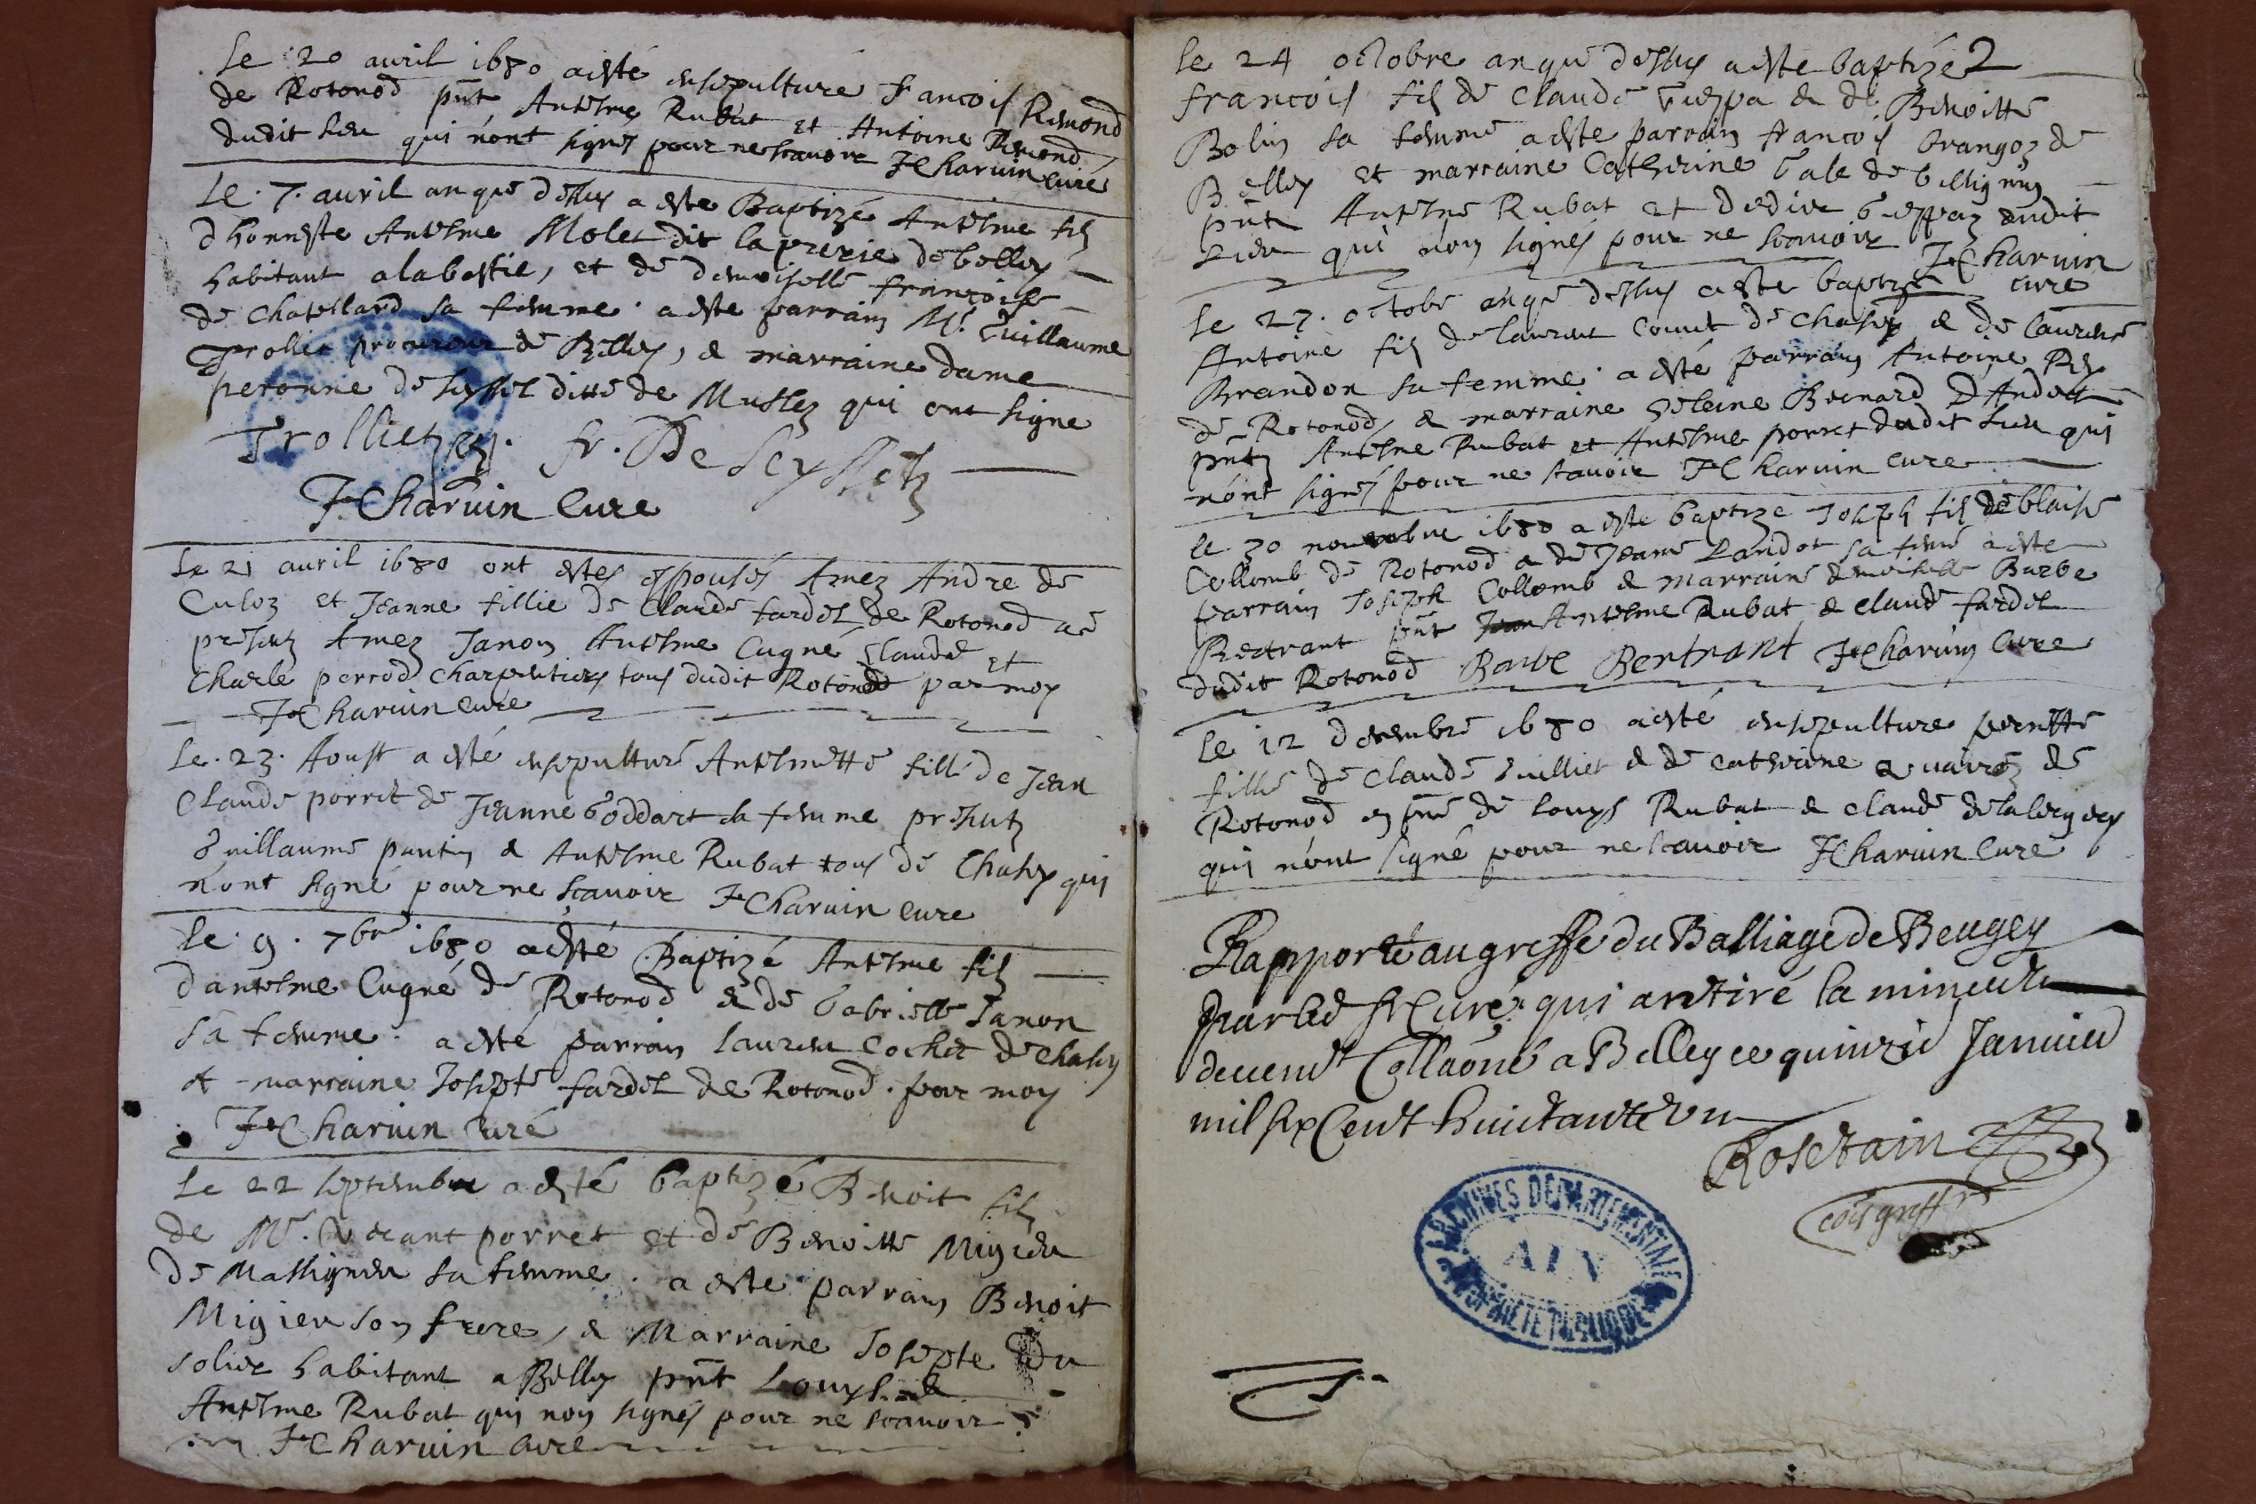 Le 20 auril 1680 a esté ensepulturé francois Remond
de Rotonod pnt Antesme Rubat et Antoine Remond
dudit lieu qui nont signés pour ne scauoir F Charuin curé
Le . 7 . auril an que dessus a este Baptizé Antesme fils
dhonneste Antesme Molet dit laprerie de belley
habitant a la bastie, et de demoiselle francoise
de Chastellard sa femme . a este parrain Mr. Guillaume
Trollier procureur de Belley, & marraine dame
peronne de seyssel ditte de Mussez qui ont signe
Trolliet fr. De Seyssel
F Charuin Cure
Le 21 auril 1680 ont estes espousés Amez Andre de
Culoz et Jeanne fillie de Claude fardel de Rotonod
presentz Amez Janon Antesme Cugné Claude et
Charle perrod Charpentiers tous dudit Rotonod par moy
F Charuin Cure
Le . 23 . Aoust a esté ensepulturé Antesmette fille de Jean
Claude porret de Jeanne Goddart sa femme presentz
Guillaume pantin & Antesme Rubat tous de Chasey qui
nont signé pour ne scauoir F Charuin cure
Le . 9 . 7bre 1680 a esté Baptizé Antesme fils
dantesme Cugné de Rotonod & de Gabrielle Janon
sa femme . a esté parrain laurent Cochet de Chasey
et marraine Josepte fardel de Rotonod . par moy
F Charuin Curé
Le 22 septembre a esté baptizé Benoit fils
de Mr. porret et de Benoitte Migieu
de Massignieu sa femme . a este parrain Benoit
Migieu son frere, & Marraine Josepte Du
solier habitant a Belley pnt Louys &
Antesme Rubat qui non signés pour ne scauoir
F Charuin cure
Le 24 octobre an que dessus a este baptizé 2
francois fils de Claude & de Benoitte
Bolin sa femme a este parrain francois brangoz de
Belley et marraine Catherine Gale de billignin
pnt Antesme Rubat et dudit
Lieu qui non signés pour ne scauoir F Charuin
cure
Le 27 . octobe an que dessus a este baptizé
Antoine fils de laurent Comte de Chasey & de laurence
Brandon sa femme . a esté parrain Antoine Rey
de Rotonod, & marraine helene Bernard DAndert
pntz Antesme Rubat et Antesme porret dudit Lieu qui
nont signés pour ne scauoir F Charuin Cure
Le 30 nouembre 1680 a este baptize Joseph fils de blaise
Collomb de Rotonod & de Jeane Landot sa feme a este
parrain Joseph Collomb & marraine demoiselle Barbe
Bertrant pnt Antesme Rubat & Claude fardel
dudit Rotonod Barbe Bertrant F Charuin Cure
Le 12 decembre 1680 a esté ensepulture pernette
fille de Claude Juilliet & de Catherine de
Rotonod en pnce de Louys Rubat & Claude
qui nont signé pour ne scauoir F Charuin Curé
Rapporté au greffe du Balliage de Beugey
par led sr Curé qui a retiré la
Collaoné a Belley ce quinzie Januier
mil six Cent huictante un
Rosetain
comis greffr
ARCHIVES DEPARTEMENTALES
AIN
PROPRIETE PUBLIQUE